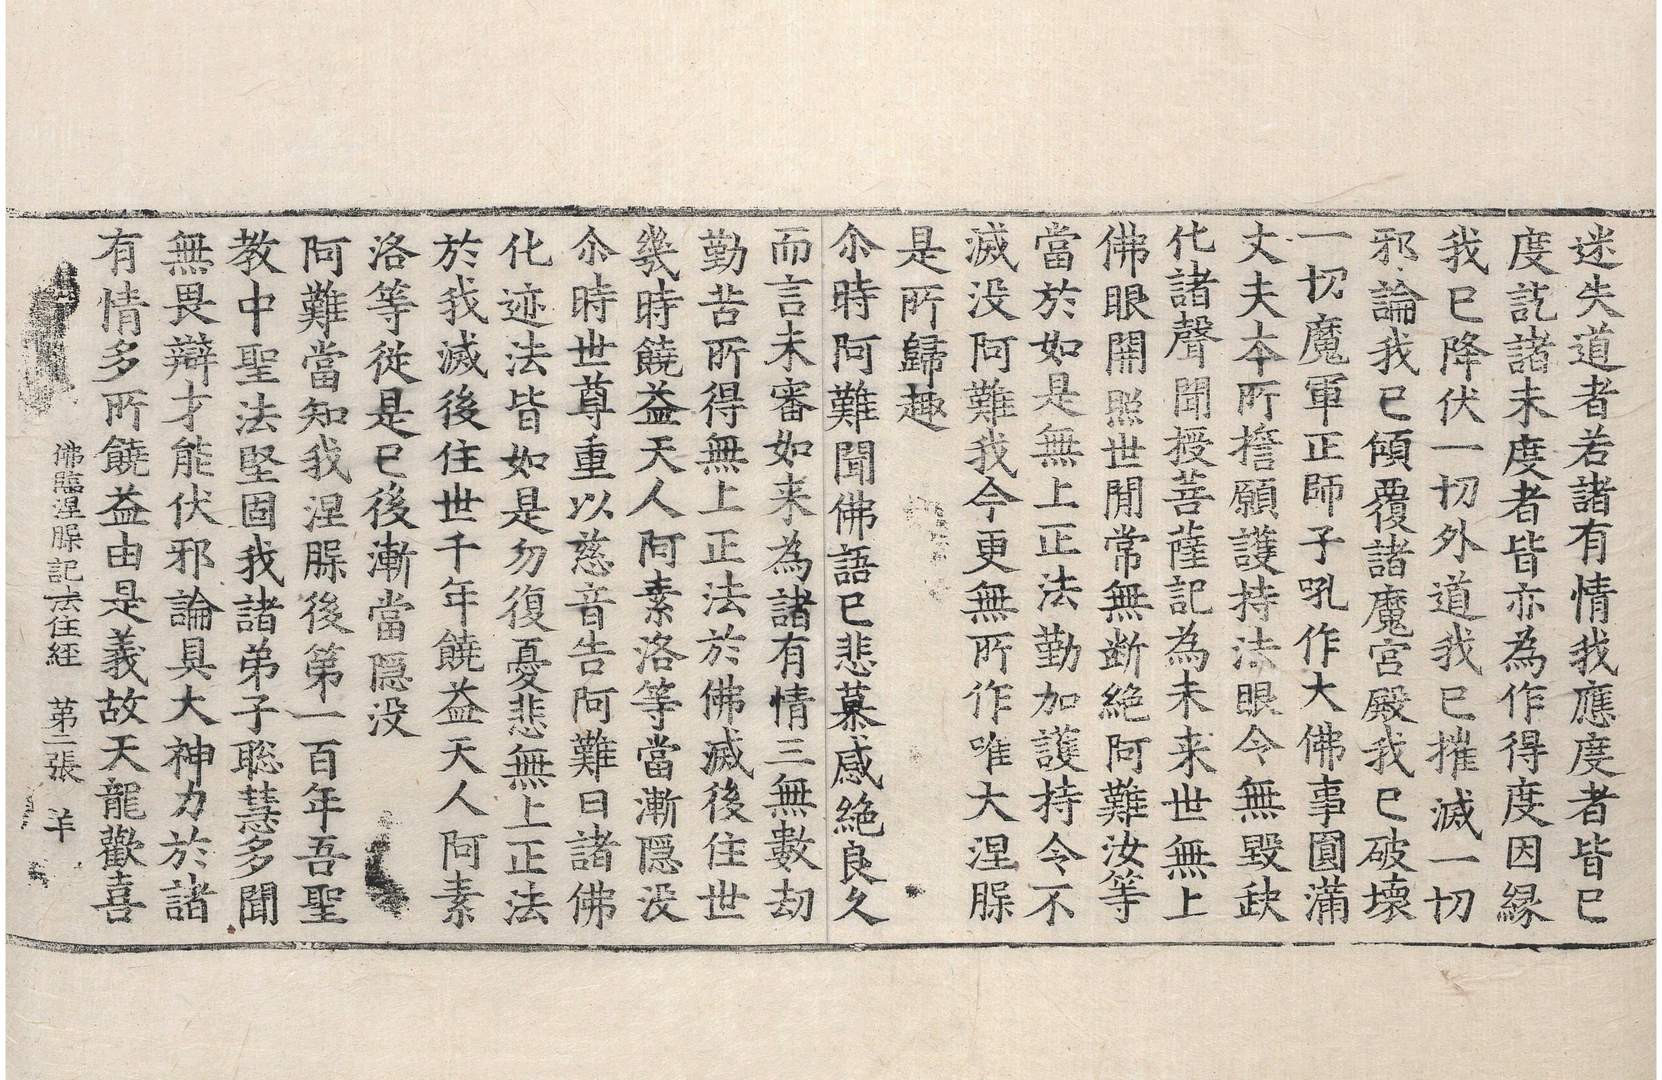 迷失道者若諸有情我應度者皆已
度訖諸未度者皆亦為作得度因緣
我已降伏一切外道我已摧滅一切
邪論我已傾覆諸魔宮殿我已破壞
一切魔軍正師子吼作大佛事圓滿
丈夫夲所擔願護持法眼令無毀缺
化諸聲聞授菩薩記為未来世無上
佛眼開照世間常無斷絕阿難汝等
當於如是無上正法勤加護持令不
滅没阿難我今更無所作唯大涅槃
是所歸趣
尒時阿難聞佛語已悲慕感絕良久
而言未審如来為諸有情三無數劫
勤苦所得無上正法於佛滅後住世
幾時饒益天人阿素洛等當漸隱没
尒時世尊重以慈音告阿難曰諸佛
化迹法皆如是勿復憂悲無上正法
於我滅後住世千年饒益天人阿素
洛等從是已後漸當隱没
阿難當知我涅槃後第一百年吾聖
教中聖法堅固我諸弟子聡慧多聞
無畏辯才能伏邪論具大神力於諸
有情多所饒益由是義故天龍歡喜
佛臨涅槃記法住經 第二張 羊